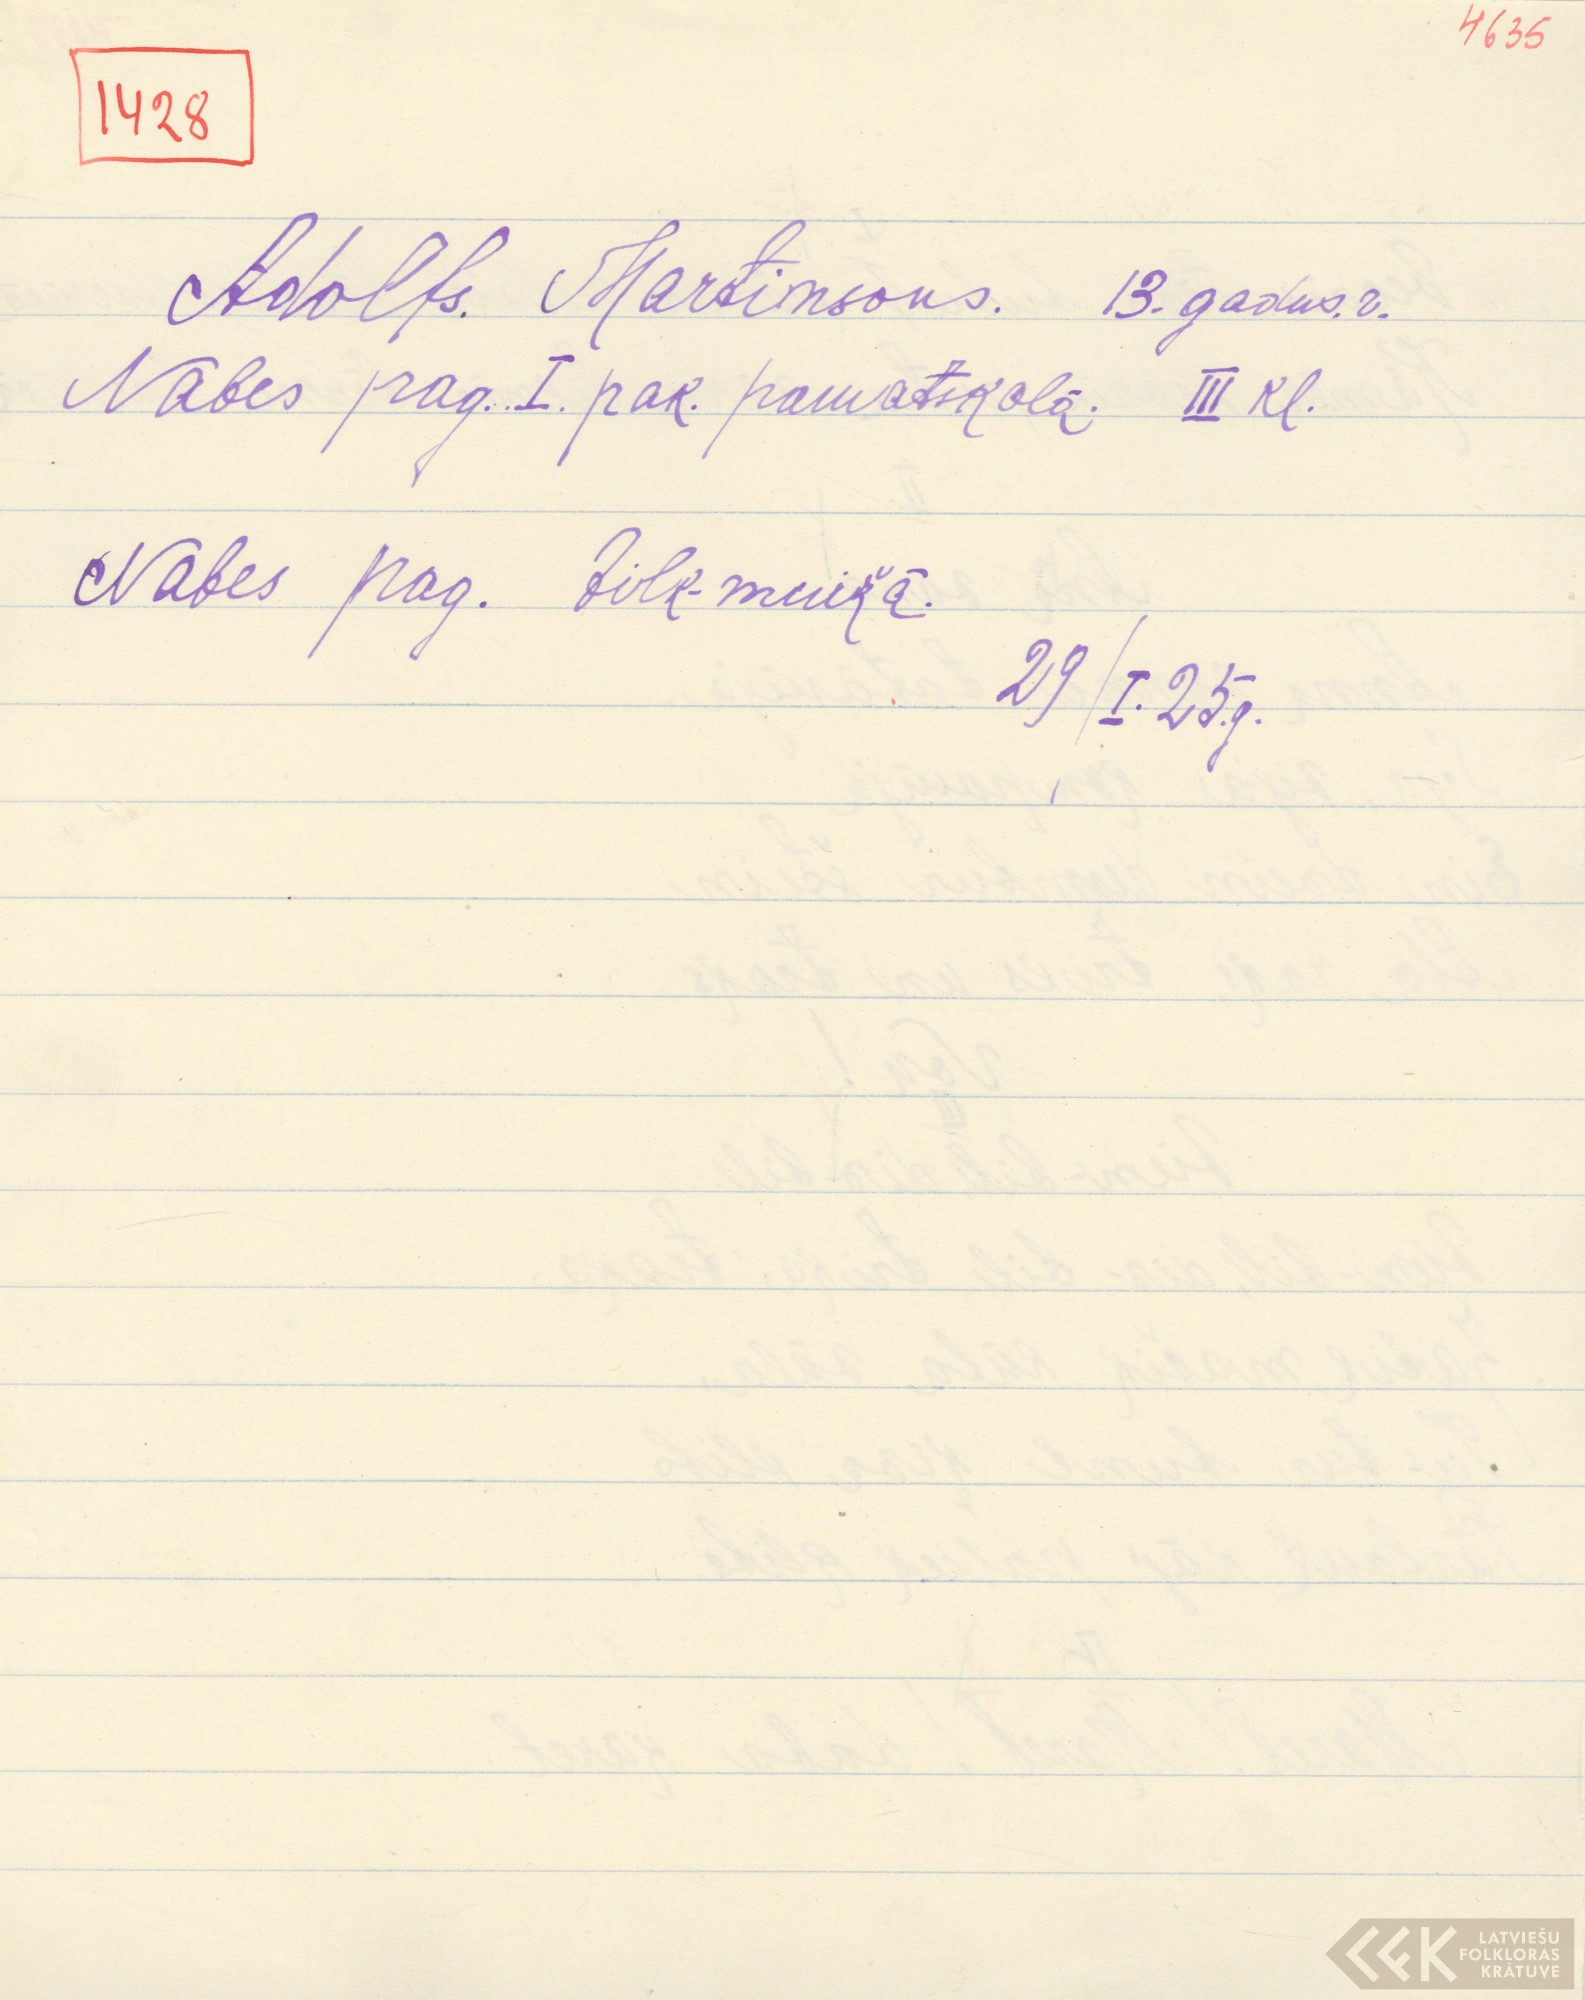 4635
1428
Adolfs. Martinsons. 13. gadus. v.
Nabes pag. I. pak. pamatskolā. III kl.
Nabes pag. muižā.
29/I. 25.g.
LATVIEŠU
FOLKLORAS
KRĀTUVE